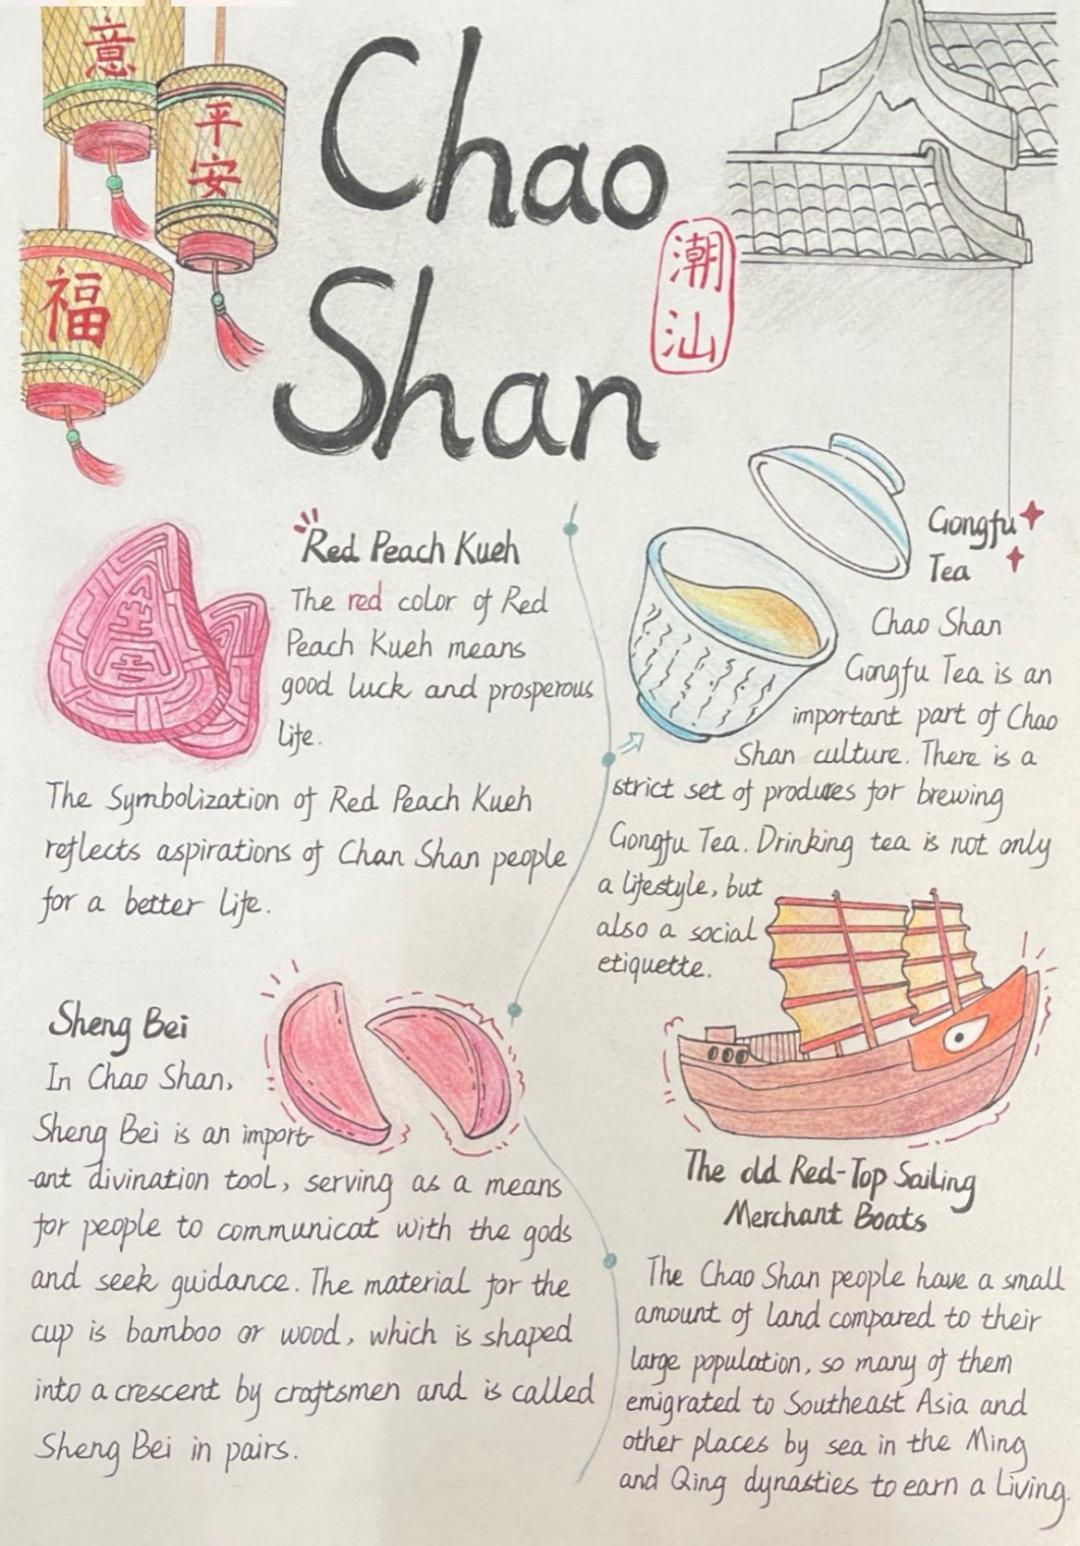 意
平
安
福
Chao
Shan
潮
汕
Red Peach Kueh
The red color of Red
Peach Kueh means
good luck and prosperous
life.
The Symbolization of Red Peach Kueh
reflects aspirations of Chan Shan people
for a better life.
Gongfu
Tea
Chao Shan
Gongfu Tea is an
important part of Chao
Shan culture. There is a
strict set of produres for brewing
Gongfu Tea. Drinking tea is not only
a lifestyle, but
also a social
etiquette.
Sheng Bei
In Chao Shan,
Sheng Bei is an import-
-ant divination tool, serving as a means
for people to communicat with the gods
and seek guidance. The material for the
cup is bamboo or wood, which is shaped
into a crescent by craftsmen and is called
Sheng Bei in pairs.
The old Red-Top Sailing
Merchant Boats
The Chao Shan people have a small
amount of land compared to their
large population, so many of them
emigrated to Southeast Asia and
other places by sea in the Ming
and Qing dynasties to earn a Living.